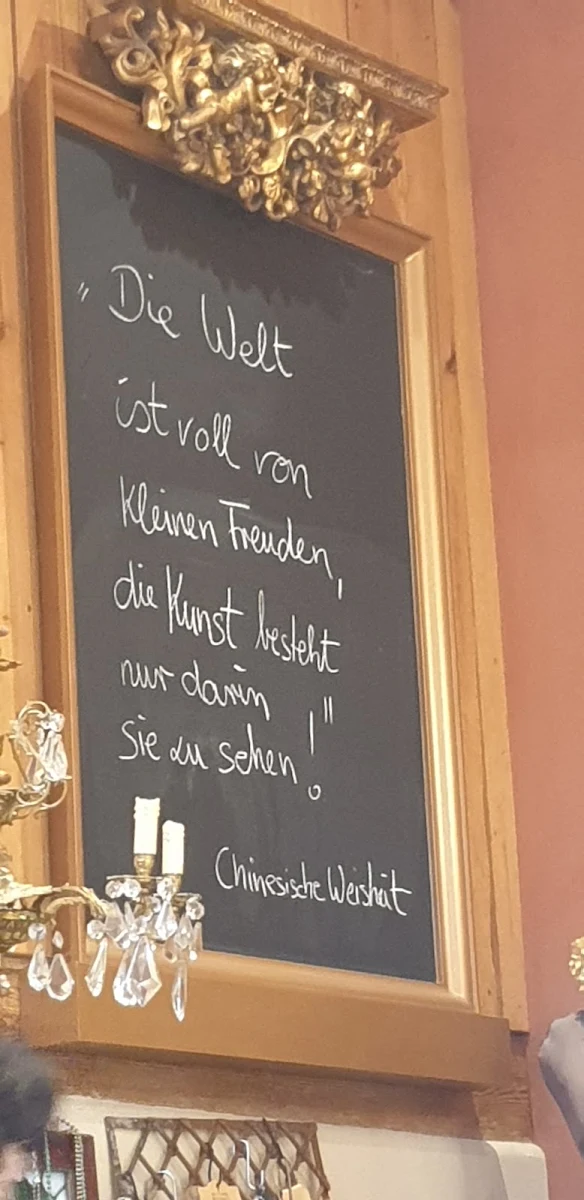 „Die Welt
ist voll von
kleinen Freuden,
die Kunst besteht
nur darin
sie zu sehen!"
Chinesische Weisheit